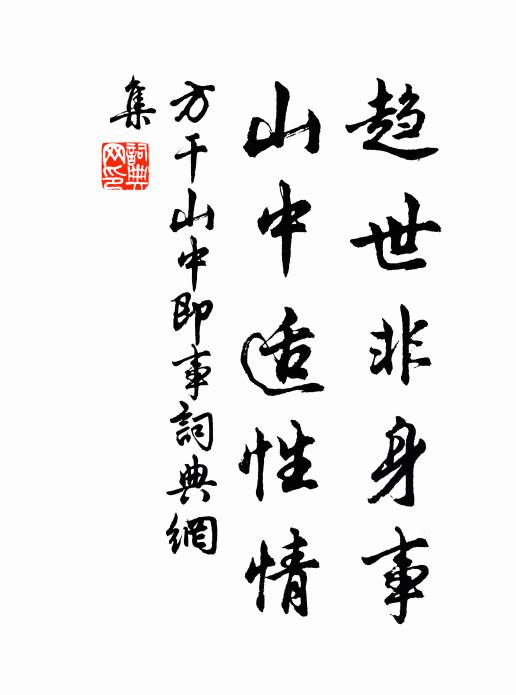 趋世非身事
山中适性情
方干山中即事詞典網
集
詞典
网印